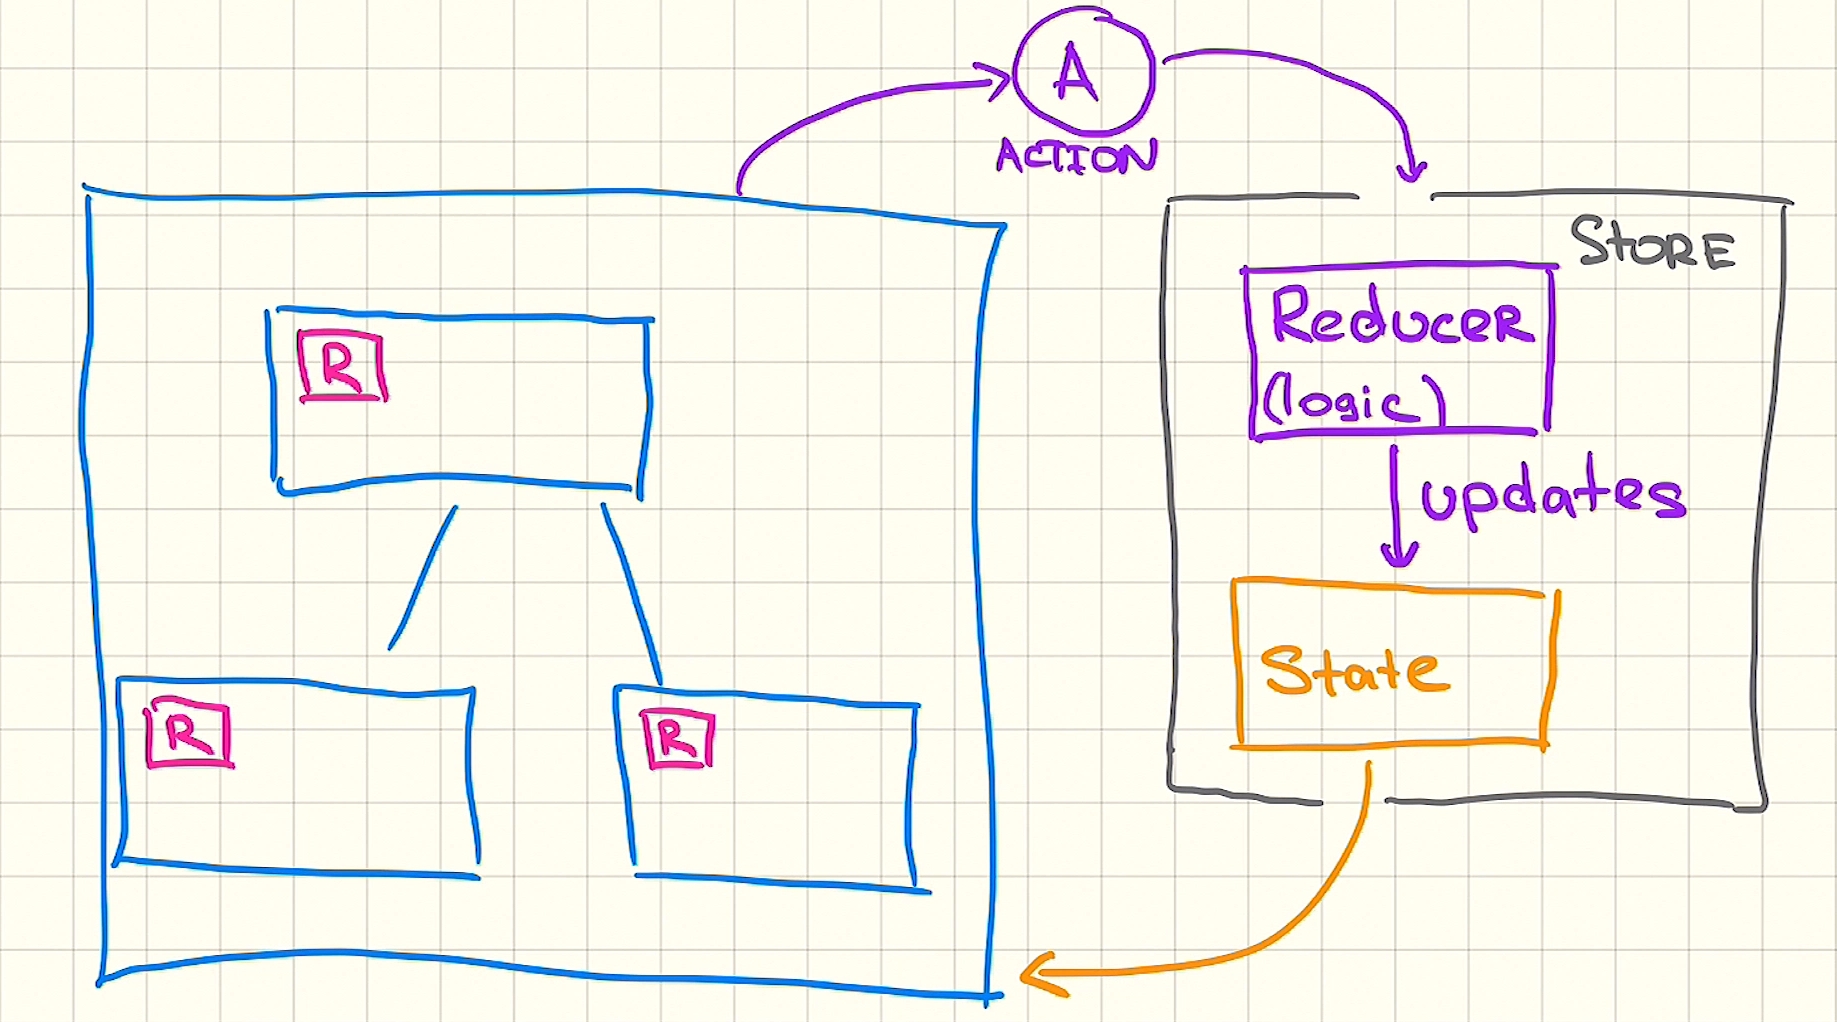 A
ACTION
STORE
Reducer
(logic)
updates
State
R
R
R